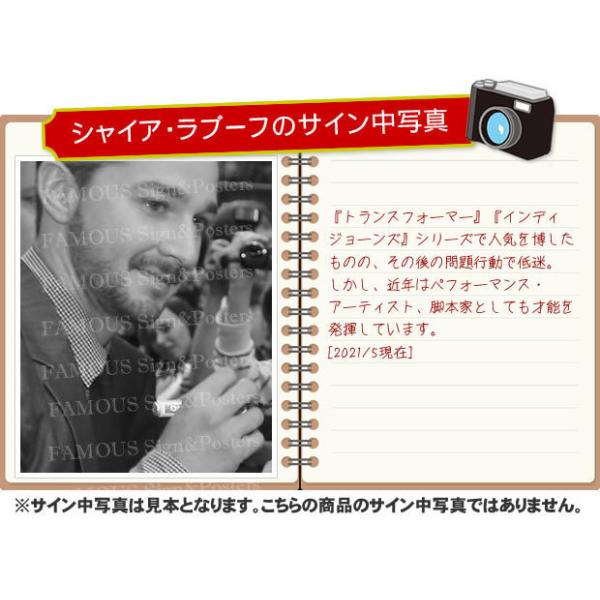 シャイア・ラブーフのサイン中写真
FAMOUS Sign&Posters
FAMOUS Sign&Posters
FAMOUS Sign&Posters
FAMOUS Sign&Posters
FAMOUS Sign&Posters
FAMOUS Sign&Posters
FAMOUS Sign&Posters
『トランスフォーマー』『インディ
ジョーンズ』シリーズで人気を博した
ものの、その後の問題行動で低迷。
しかし、近年はペフォーマンス・
アーティスト、脚本家としても才能を
発揮しています。
[2021/5現在]
※サイン中写真は見本となります。こちらの商品のサイン中写真ではありません。